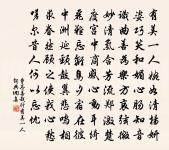 有美一人婉如清揚妍
姿巧笑和媚心腸知音
識曲善為樂方哀絃微
妙清氣含芳流鄭激楚
度宮中商感心動耳綺
麗難忘離鳥夕宿在彼
中洲延頸鼓翼悲鳴相
求眷然顧之使我心愁
嗟爾昔人何以忘憂
曹丕善哉行有美一人